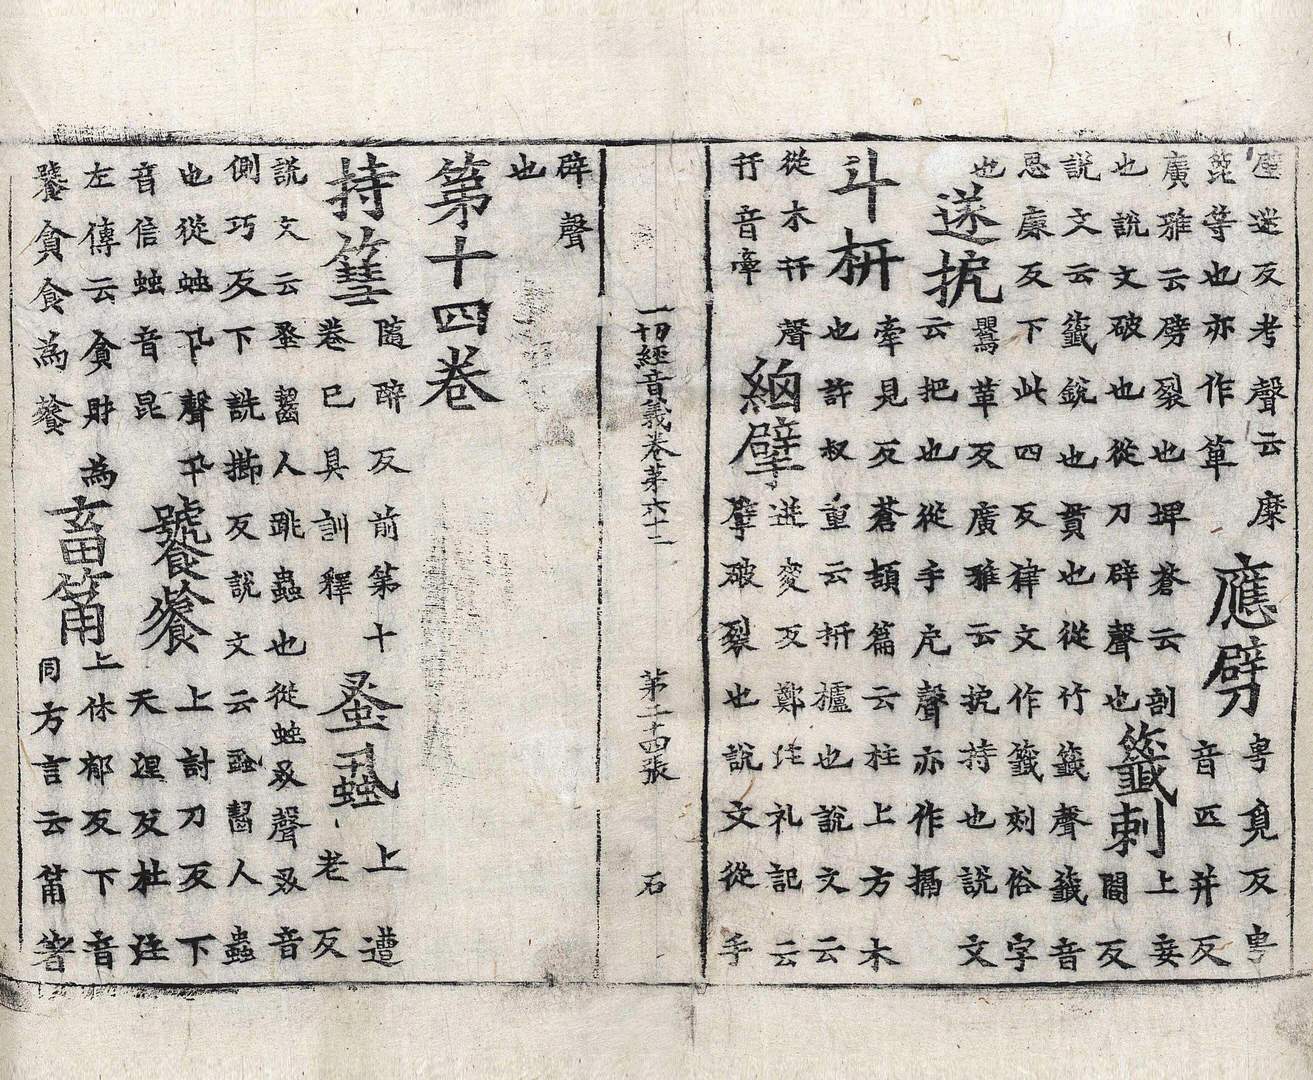 迷反考聲云糜
箆等也亦作箄
應劈
粤覓反粤
音匹并反
廣雅云劈裂也埤蒼云剖
也說文破也從刀辟聲也
籤刺
上妾
閻反
說文云籤銳也貫也從竹韱聲韱音
息廉反下此四反律文作籤刻俗字
也
送搤
罌革反廣雅云搤持也說文
云把也從手戹聲亦作搹
斗枅
牽見反蒼頡篇云柱上方木
也許叔重云枅櫨也說文云
從木幵聲
幵音牽
擘
迸変反鄭注礼記云
擘破裂也說文從手
一切經音義卷苐六十二 第二十四張 石
辟聲
也
第十四卷
持篲
隨醉反前第十
卷已具訓釋
蚤蝨
上遭
老反
說文云蚤齧人跳蟲也從䖵叉聲叉音
側巧反下詵擳反說文云蝨齧人蟲
也從䖵卂聲卂
音信䖵音昆
饕餮
上討刀反下
天涅反杜注
左傳云貪財為
饕貪食為餮
畜筩
上休郁反下音
同方言云筩箸